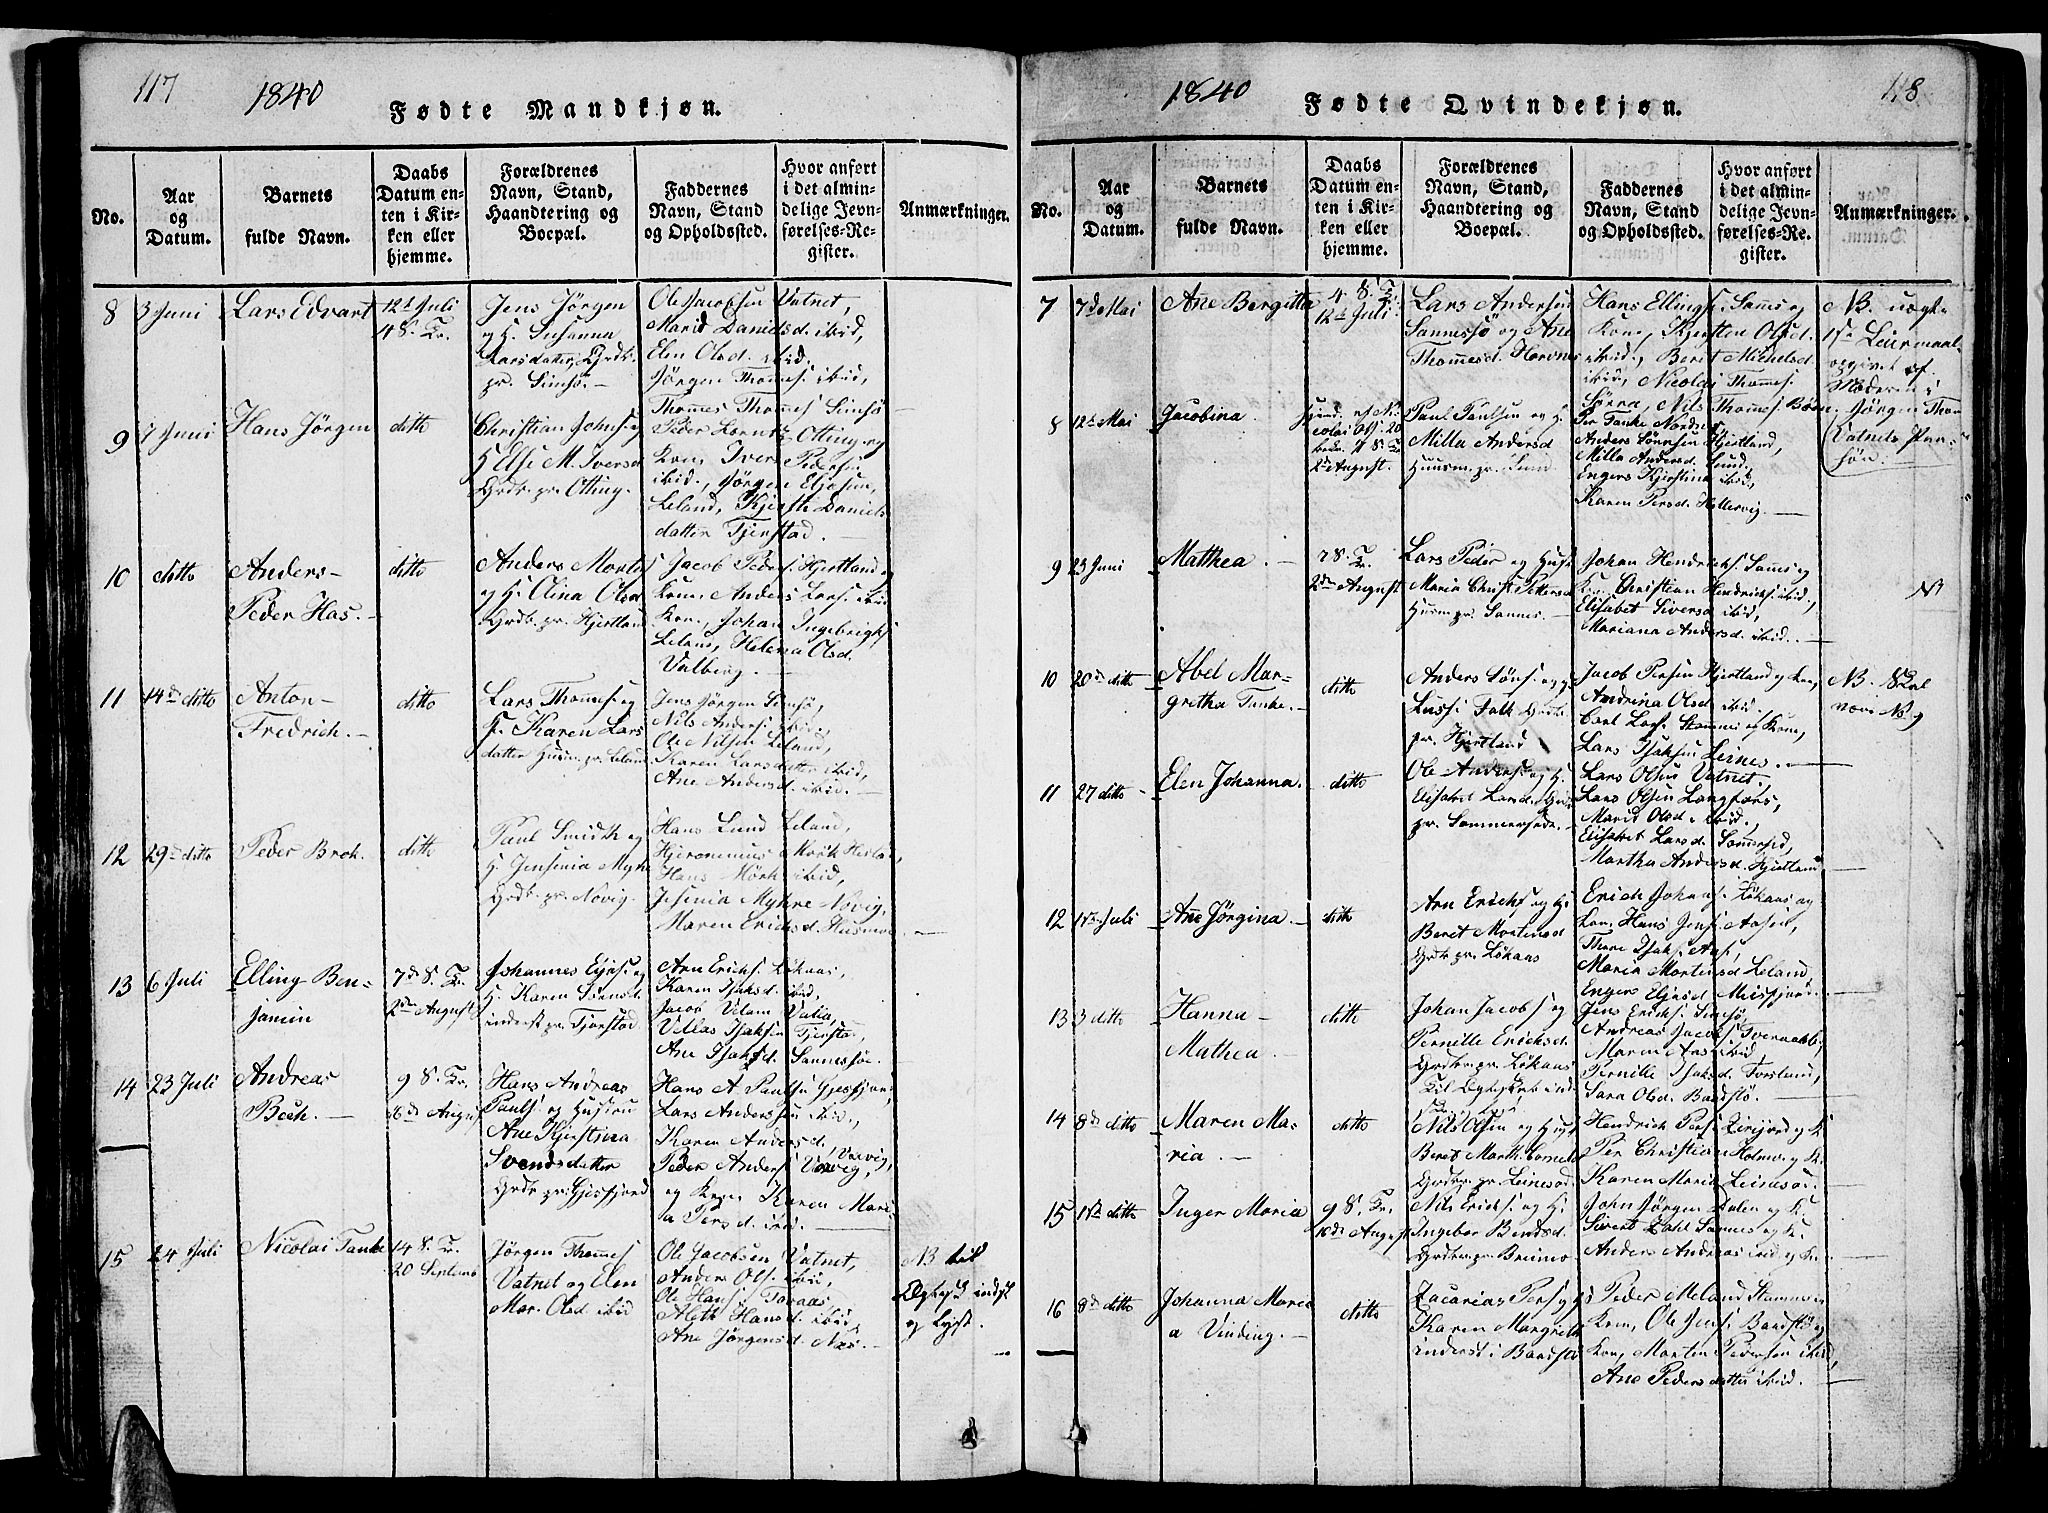 117
1840
Fødte Mandkjøn.
No.
Aar
og
Datum.
Barnets
fulde Navn.
Daabs
Datum en-
ten i Kir-
ken eller
hjemme.
Forældrenes
Navn, Stand,
Haandtering og
Boepæl.
Faddernes
Navn, Stand
og Opholdssted.
Hvor anført
i det almin-
delige Jevn-
førelses-Re-
gister.
Anmærkninger.
8
3 Juni
Lars Edvart
12te Juli
4 S. Tr.
Jens Jörgen
og H. Susanna
Larsdatter, Grdb.
pr. Simsö. —
Ole Jacobsen Vatnet,
Marid Danielsd. ibid,
Elen Olsd. ibid.
Jörgen Thomes. ibid,
Thomes Thomes. Simsö —
9
7 Juni
Hans Jörgen
ditto
Christian Johns. og
H. Else M. Iversd
Grdb. pr. Otting.
Peder Lorntz Otting og
Kone, Iver Pedersen
ibid., Jörgen Eliesen,
Leland, Kjersti Daniels
datter Tjerstad. —
10
ditto
Anders
Peder Has. —
ditto
Anders Morten
og H. Olina Olsd
Grdb. pr. Hjertland
Jacob Peders. Hjertland og
Kone, Anders Lars. ibid
Kone, Johan Ingebrigts
Leland, Helena Olsd.
Valberg. —
11
14de ditto
Anton
Fredrich. —
ditto
Lars Thomes. og
F. Karen Lars
datter Husm. pr. Leland
Jens Jörgen Simsö,
Nils Anders. ibid.,
Ole Nilsen Leland,
Karen Larsdatter ibid,
Ane Andersd. ibid. —
12
29de ditto
Peder Brok.
ditto
Paul Smidth og
H. Jensinia Myhre
Grdb. pr. Novig.
Hans Lund Leland,
Hjeronimus Mörk
Hans Mörk ibid,
Jesinia Myhre Novig,
Maren Ericsd.
13
6 Juli
Elling Ben-
jamin
7de S. Tr.
2den August
Johannes
H. Karen Sörensd.
inderst pr. Tjerstad
Arn Erichs. Lökaas,
Karen Isaksd. ibid,
Jacob Velam Valla,
Vellas Isaksen Tjersta,
Ane Isaksd. Sannessöe.
14
23 Juli
Andreas
Bech. —
9 S. Tr.
16de August
Hans Andreas
Pauls. og Hustru
Ane Kjerstina
Svendsdatter
Grdb. pr. Gjesfjord
Hans A Pauls. Gjesfjord,
Lars Anderssen ibid.,
Karen Andersd. Vaxvig,
Peder Anders. Vaxvig,
og Kone Karen Mari-
a Persd. ibid. —
15
24 Juli
Nicolai Tanke
14 S. Tr.
20 Septemb
Jörgen Thomes
Vatnet og Elen
Mar. Olsd ibid
Ole Jacobsen Vatnet,
Anders Ols. ibid,
Ole Hans. Favaas
Aleth Hansd. ibid,
Ane Jörgensd. Næs. —
NB til
Ægtesk indst
og Lyst.
118
1840
Fødte Qvindekjøn.
No.
Aar
og
Datum.
Barnets
fulde Navn.
Daabs
Datum en-
ten i Kir-
ken eller
hjemme.
Forældrenes
Navn, Stand,
Haandtering og
Boepæl.
Faddernes
Navn, Stand
og Opholdssted.
Hvor anført
i det almin-
delige Jevn-
førelses-Re-
gister.
Anmærkninger.
7
7de Mai
Ane Bergitta
4 S. Tr.
12te Juli
Lars Andersen
Sannessö og Ane
Thomesd. Havnes
Hans Ellings. Sannes og
Kone, Kjersten Olsd.
ibid., Berit Michelsd
ibid, Nicolai Thomes.
Sörra, Nils Thomes
NB. uægte
1ste Leiermaal
opgivet af
Moderen i
Jörgen Thom
Vatnets Paa-
hör.
8
12te Mai
Jacobina
hjemd. af Ni-
colai Ols. 20
bekr. 7 S. Tr
2den August.
Paul Paulsen og H.
Milla Andersd
Huusm. pr. Lund.
Per Tanke Nordnes,
Anders Sörensen Hjertland,
Milla Andersd. Lund.
Engers Kjerstina ibid,
Karen Persd. Hellervig. —
9
23 Juni
Matthea. —
7 S. Tr.
2den August
Lars Peder og Hust
Maria Christ. Pettersen
Husm. pr. Sannes. —
Johan Hendrichs. Sannes og
Kone Christian Hendrichs. ibid.,
Elisabet Siversd ibid,
Mariana Andersd. ibid. —
10
20de ditto
Abel Mar-
gretha Tanke. —
ditto
Anders Sörs. og
Lussi Falk Grdb.
pr. Hjertland
Jacob Persen Hjertland og Kone,
Andrina Olsd ibid.
Carl Lars. Stamnes og Kone,
Lars Isaksen Leines. —
NB. Skal
være No 9
11
27 ditto
Elen Johanna. —
ditto
Ole Anders. og H.
Elisabet Larsd. Grdb
pr. Sommersede. —
Lars Olsen Vatnet,
Lars Olsen Langfors,
Marid Olsd. ibid.,
Elisabet Larsd. Sommersed,
Martha Andersd. Hjertland. —
12
1ste Juli
Ane Jörgina. —
ditto
Arn Erichs og H.
Beret Mortensd
Grdb. pr. Lökaas
Erich Johans. Lökaas og
Kone, Hans Jens. Aasen,
Thore Isaks. Aas,
Maria Mortensd. Leland,
Enger Eliesd. Misfjord. —
13
3 ditto
Hanna
Mathea. —
ditto
Johan Jacobs. og
Pernille Erichsd.
Grdb. pr. Lökaas
Til Ægteskab ind-
Jens Erichs. Simsö,
Andreas Jacobs.
Maren Aas ibid
Pernille Isaksd. Forsland,
Sara Olsd. Bardstö. —
14
8de ditto
Maren Ma-
ria. —
ditto
Nils Olsen og Hust
Beret Marth. Corneld
Grdb. pr. Leinesod
Hendrich Pers. og K
Per Christian Holme og K.
Karen Maria Leinesod. —
15
11te ditto
Inger Maria
9 S. Tr.
16de August
Nils Erichs. og H.
Ingebor Bendsd.
Grdb. pr. Breimo
John Jörgen Dalen og K.
Sivert Dahl Sannes og K.
Anders Andreas ibid og K. —
16
8de ditto
Johanna Mari-
a Vinding. —
ditto
Zacarias Pers og H
Karen Margreth
inderst i Bardstö
Peder Meland Stamnes og
Kone, Ole Jens. Bardstö og
Kone, Morten Pedersen ibid,
Ane Pedersdatter ibid. —